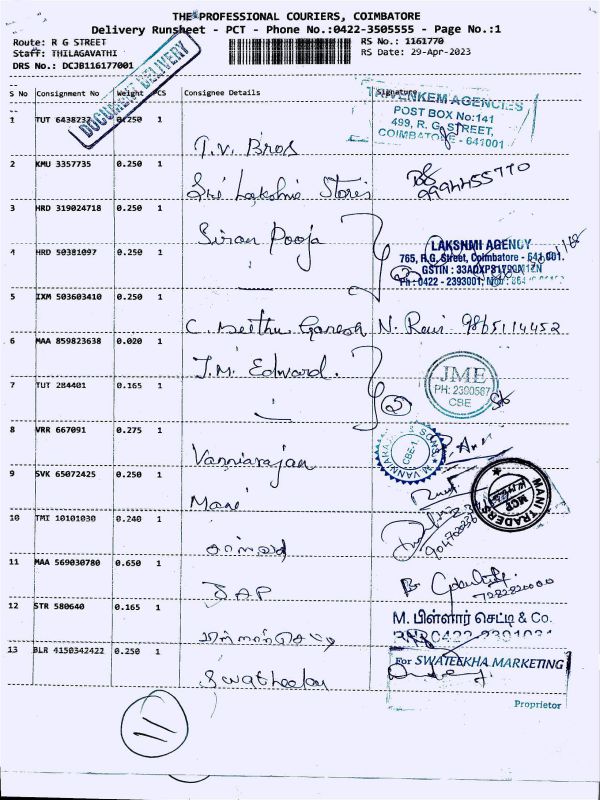 THE PROFESSIONAL COURIERS, COIMBATORE
Delivery Runsheet - PCT - Phone No.:0422-3505555 - Page No.:1
Route: R G STREET
RS No.: 1161770
Staff: THILAGAVATHI
RS Date: 29-Apr-2023
DRS No.: DCJB116177001
DOCUMENT DELIVERY
S No Consignment No Weight PCS Consignee Details Signature
1 TUT 6438237 0.250 1 T.V. Bros
AGENCIES
POST BOX No:141
499, R. G. STREET,
COIMBATORE - 641001
2 KMU 3357735 0.250 1 Sri Lakshmi Stores
9994455770
3 HRD 319024718 0.250 1 Siran Pooja
4 HRD 50381097 0.250 1
②
LAKSHMI AGENCY
765, R.G. Street, Coimbatore - 641 001.
Ph : 0422 - 2393001,
5 IXM 503603410 0.250 1 C. Ganesh N. Ravi 9865114452
6 MAA 859823638 0.020 1 J.M. Edward.
7 TUT 284401 0.165 1
②
JME
PH: 2390587
CBE
8 VRR 667091 0.275 1 Vanniarajan
& SONS
CBE-1
9 SVK 65072425 0.250 1 Mani
MANI TRADERS
10 TMI 10101030 0.240 1
11 MAA 569030780 0.650 1 SAP
12 STR 580640 0.165 1
M. பிள்ளார் செட்டி & Co.
13 BLR 4150342422 0.250 1
For SWATEEKHA MARKETING
Proprietor
11